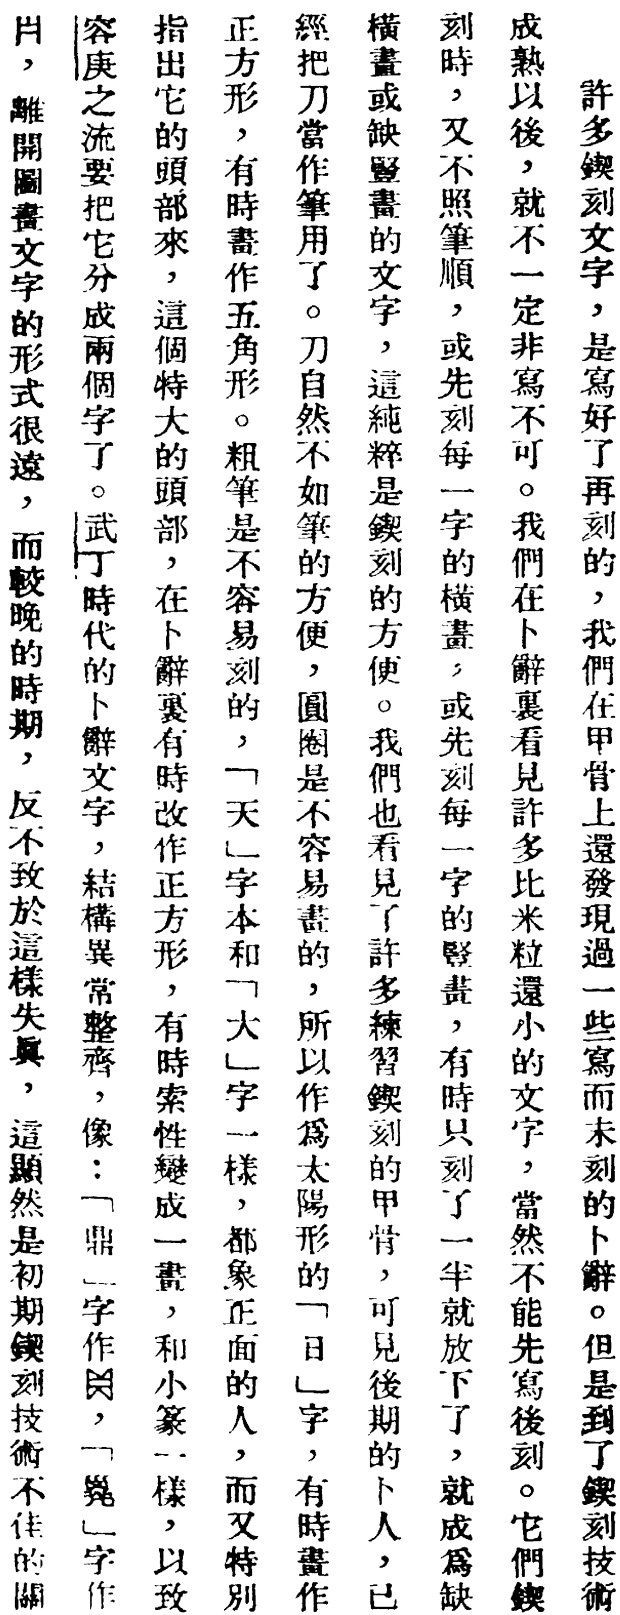 許多鍥刻文字，是寫好了再刻的，我們在甲骨上還發現過一些寫而未刻的卜辭。但是到了鍥刻技術
成熟以後，就不一定非寫不可。我們在卜辭裏看見許多比米粒還小的文字，當然不能先寫後刻。它們鍥
刻時，又不照筆順，或先刻每一字的橫畫，或先刻每一字的豎畫，有時只刻了一半就放下了，就成爲缺
橫畫或缺豎畫的文字，這純粹是鍥刻的方便。我們也看見了許多練習鍥刻的甲骨，可見後期的卜人，已
經把刀當作筆用了。刀自然不如筆的方便，圓圈是不容易畫的，所以作爲太陽形的「日」字，有時畫作
正方形，有時畫作五角形。粗筆是不容易刻的，「天」字本和「大」字一樣，都象正面的人，而又特別
指出它的頭部來，這個特大的頭部，在卜辭裏有時改作正方形，有時索性變成一畫，和小篆一樣，以致
容庚之流要把它分成兩個字了。武丁時代的卜辭文字，結構異常整齊，像：「鼎」字作，「」字作
，離開圖畫文字的形式很遠，而較晚的時期，反不致於這樣失眞，這顯然是初期鍥刻技術不佳的關